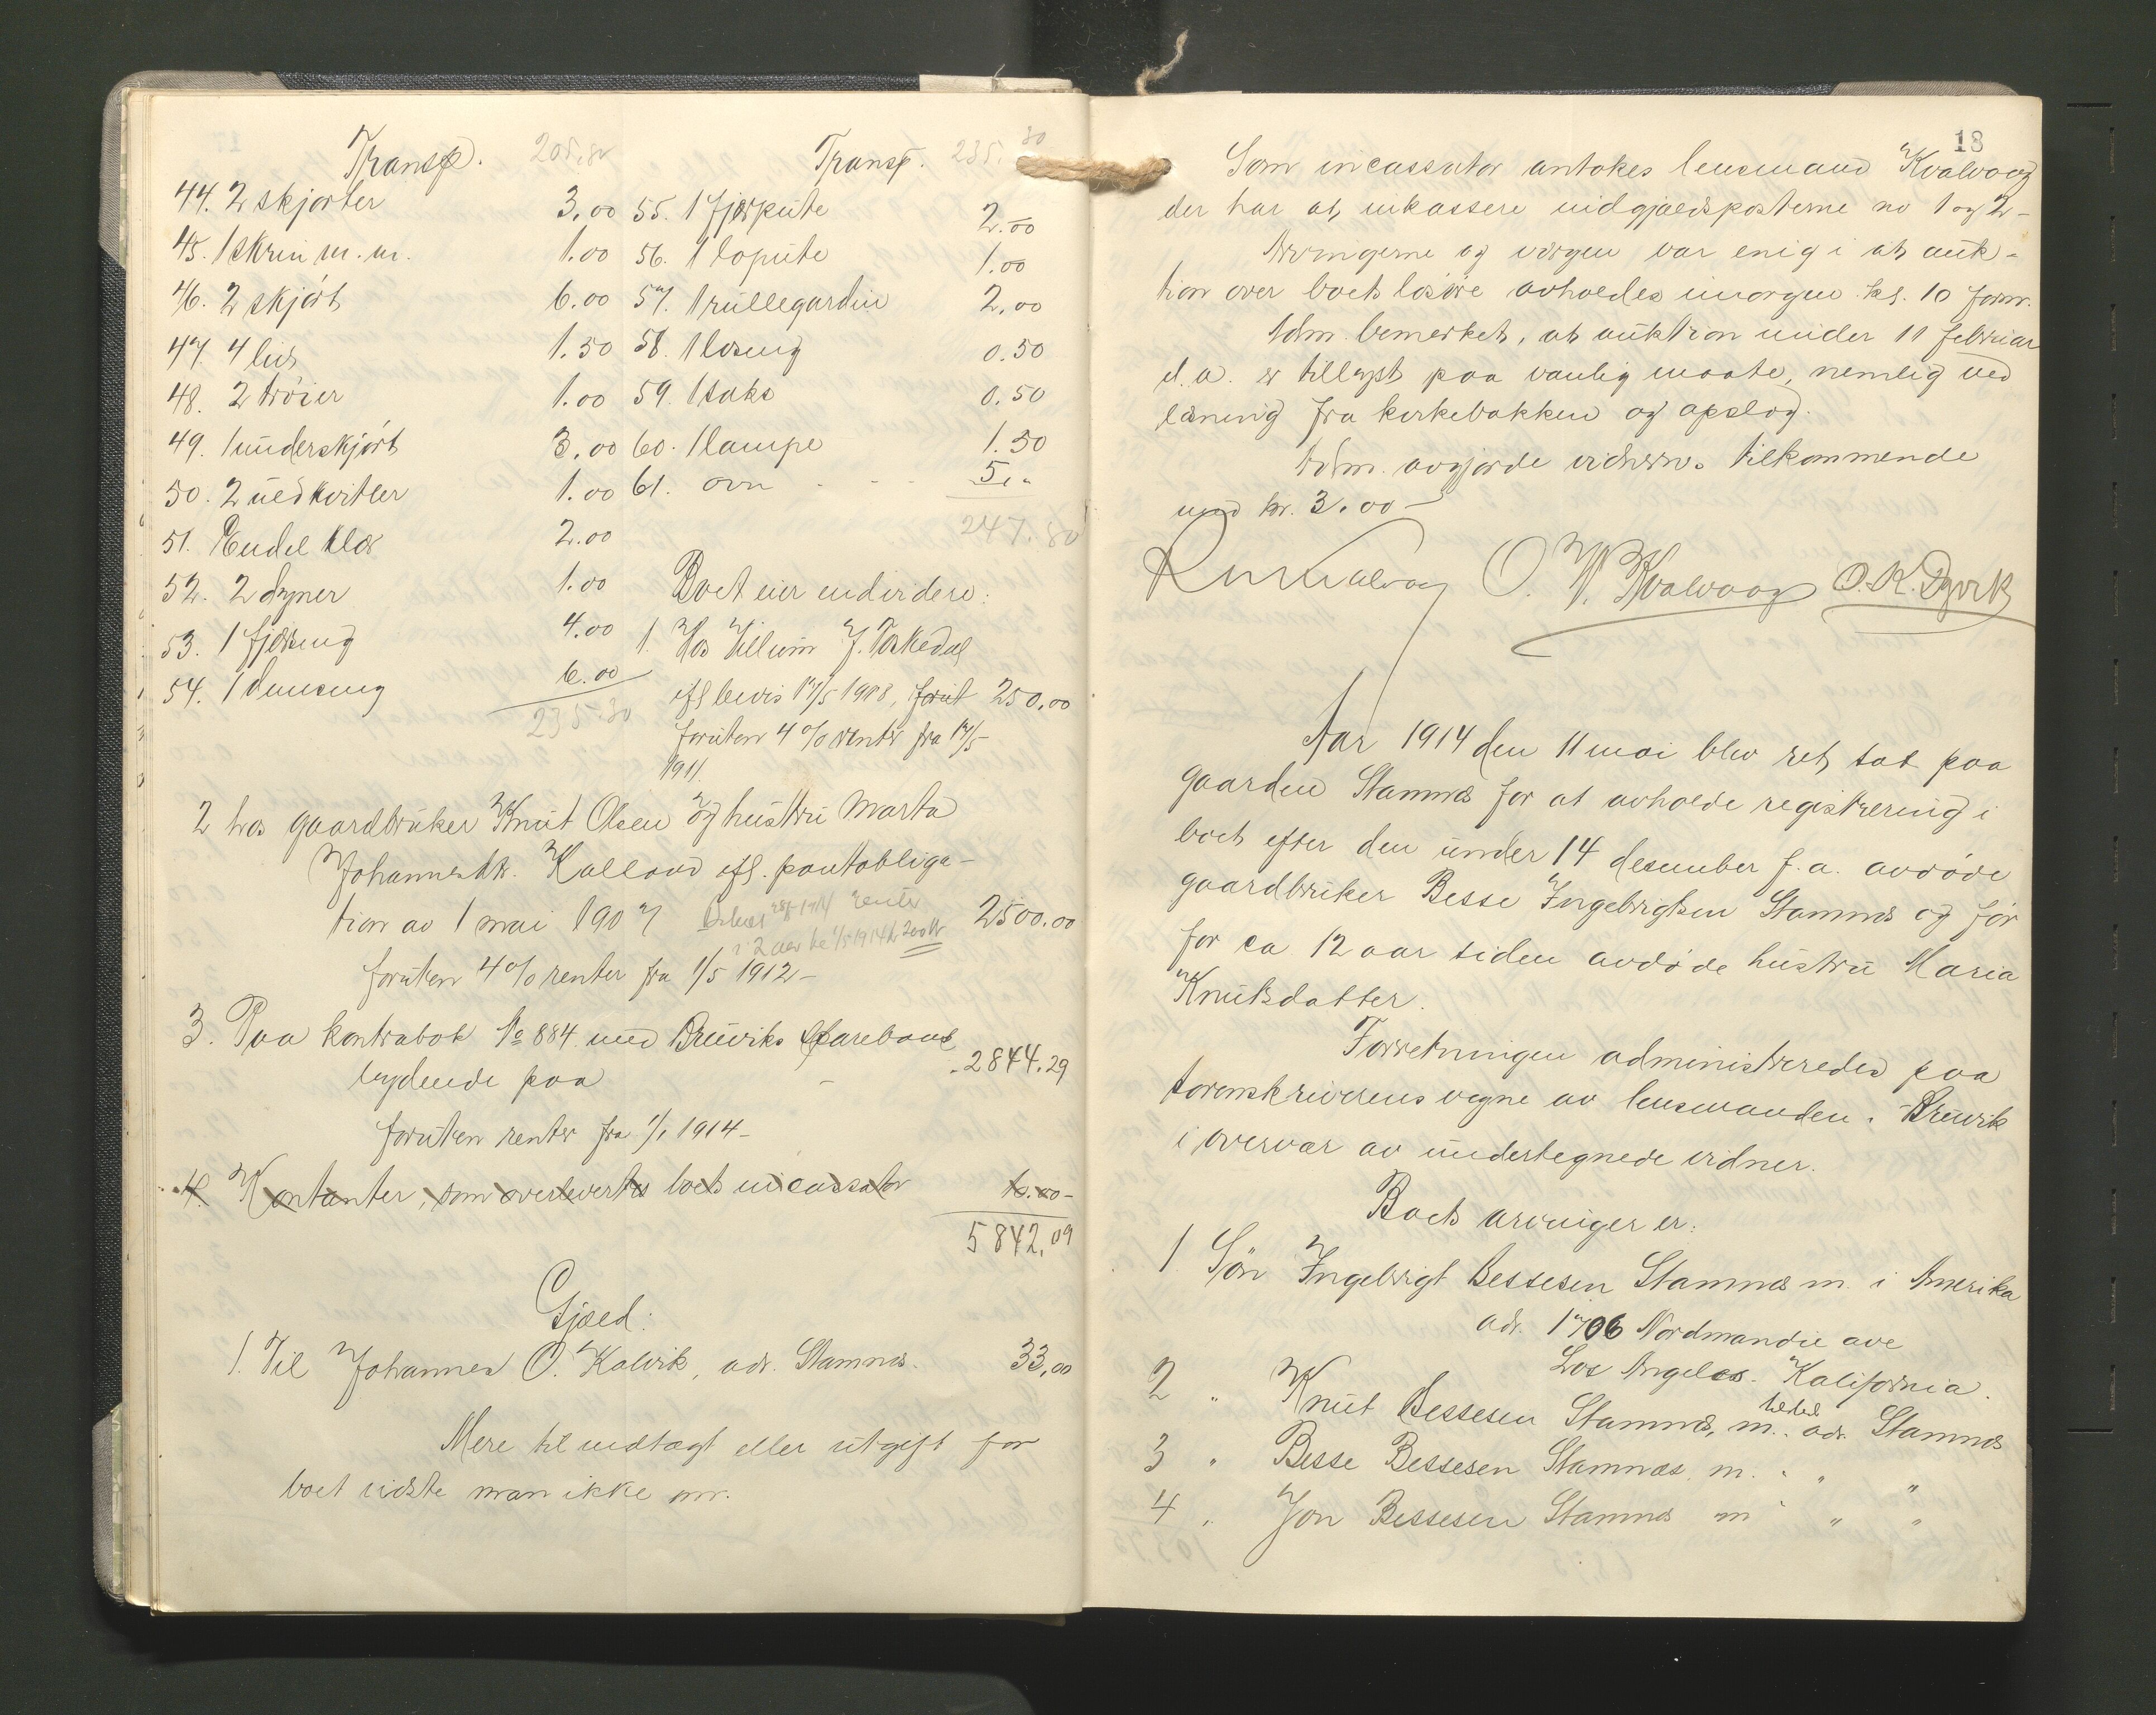 Transp. 205.80
44. 2 skjorter 3.00
45. 1 skrin m.m. 1.00
46. 2 skjørt 6.00
47. 4 liv 1.50
48. 2 trøier 1.00
49. 1 underskjørt 3.00
50. 2 uldkvitler 1.00
51. Endel klær 2.00
52. 2 dyner 1.00
53. 1 fjørseng 4.00
54. 1 dunseng 6.00
235.80
Transp. 235.80
55. 1 fjørpute 2.00
56. 1 topute 1.00
57. 1 rullegardin 2.00
58. 1 loseng 0.50
59. 1 saks 0.50
60. 1 lampe 1.50
61. ovn - - - 5,"
247.80
Boet eier endvidere:
1. Hos Villum J. Toskedal
ifl bevis 17/5 1908, forut 250.00
foruten 4 % renter fra 17/5
1911.
2 hos gaardbruker Knut Olsen og hustru Marta
Johannesdtr. Kalland ifl. pantobliga-
tion av 1 mai 1907 2500.00
renter
i 2 aar til 1/5 1914 kr 200 kr
foruten 4 % renter fra 1/5 1912 -
3. Paa kontrabok No 884 med Bruviks Sparebank
lydende paa - 2844.29
foruten renter fra 1/1 1914 -
4. Kontanter, som overlevertes boets incassator 6.00 -
5842.09
Gjæld:
1. Til Johannes O. Kalvik, adr. Stamnes. 33,00
Mere til indtægt eller utgift for
boet vidste man ikke av.
18
Som incassator antokes lensmand Kvalvaag
der har at inkassere indgjældsposterne no 1 og 2 -
Arvingerne og vergen var enig i at auk-
tion over boets løsøre avholdes imorgen kl. 10 form.
Adm. bemerket, at auktion under 11 februar
d.a. er tillyst paa vanlig maate, nemlig ved
læsning fra kirkebakken og opslag.
Adm. avgjorde vidnern. tilkommende
med kr. 3.00 -
Kvalvaag O. N. Kvalvaag O. K. Dyvik
Aar 1914 den 11 mai blev ret sat paa
gaarden Stamnes for at avholde registrering i
boet efter den under 14 desember f.a. avdøde
gaardbruker Besse Ingebrigtsen Stamnes og før
for ca 12 aar siden avdøde hustru Maria
Knutsdatter.
Forretningen administreredes paa
sorenskriverens vegne av lensmanden i Bruvik
i overvær av undertegnede vidner.
Boets arvinger er:
1 Søn Ingebrigt Bessesen Stamnes m. i Amerika
adr. 1706 Nordmandie ave
Los Angeles. Kalifornia.
2 " Knut Bessesen Stamnes, m. tilsted adr. Stamnes
3 " Besse Bessesen Stamnes, m. " " "
4 " Jon Bessesen Stamnes m " " "